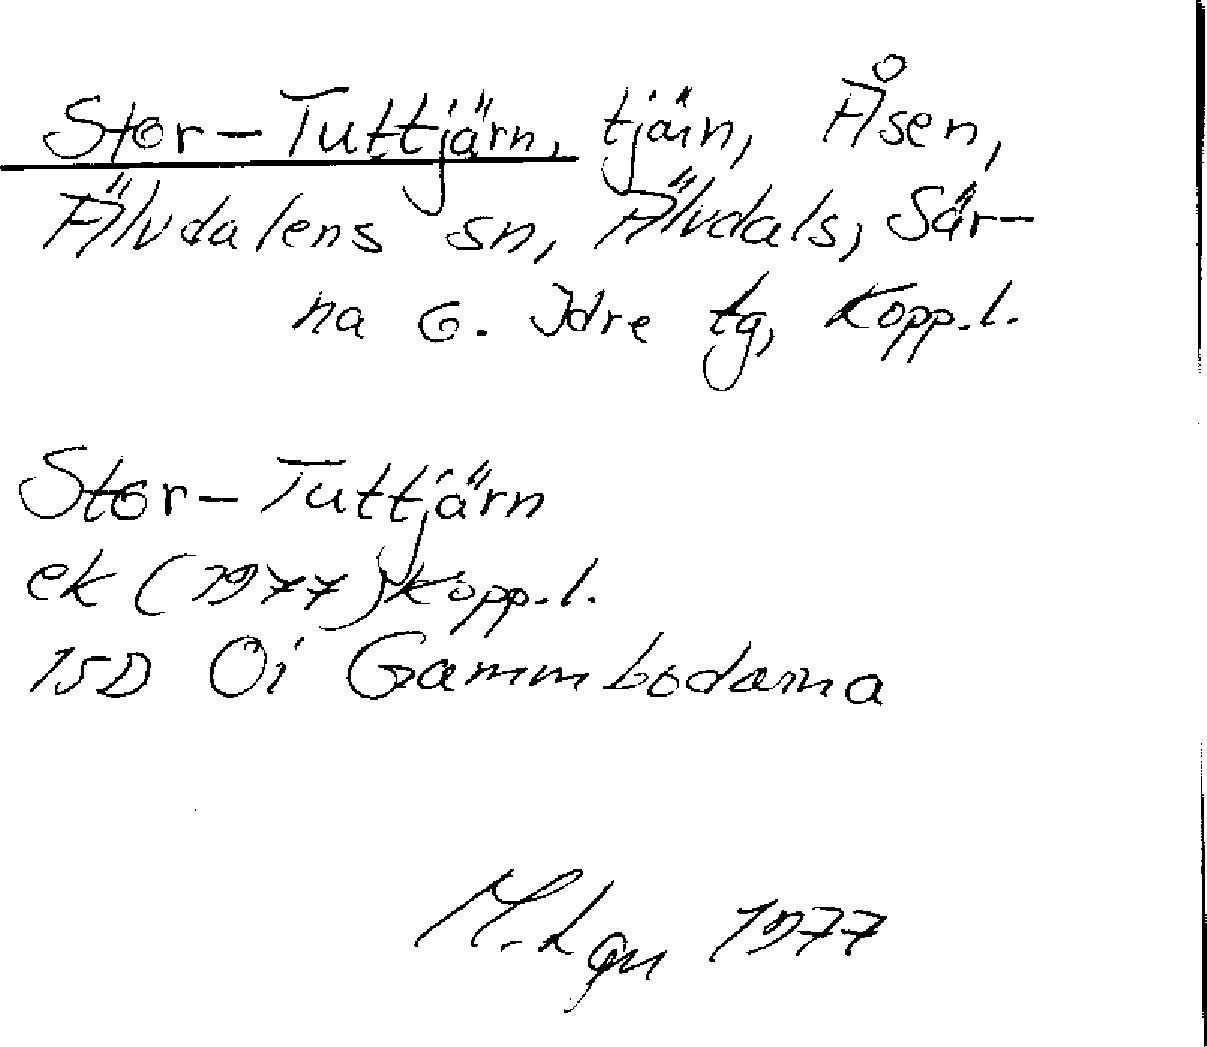 Stor-Tuttjärn, tjärn, Åsen,
Älvdalens sn, Älvdals, Sär-
na o. Idre tg, Kopp.l.
Stor-Tuttjärn
ek (1977) Kopp.l.
15D 0i Gammbodarna
M. Lgn 1977